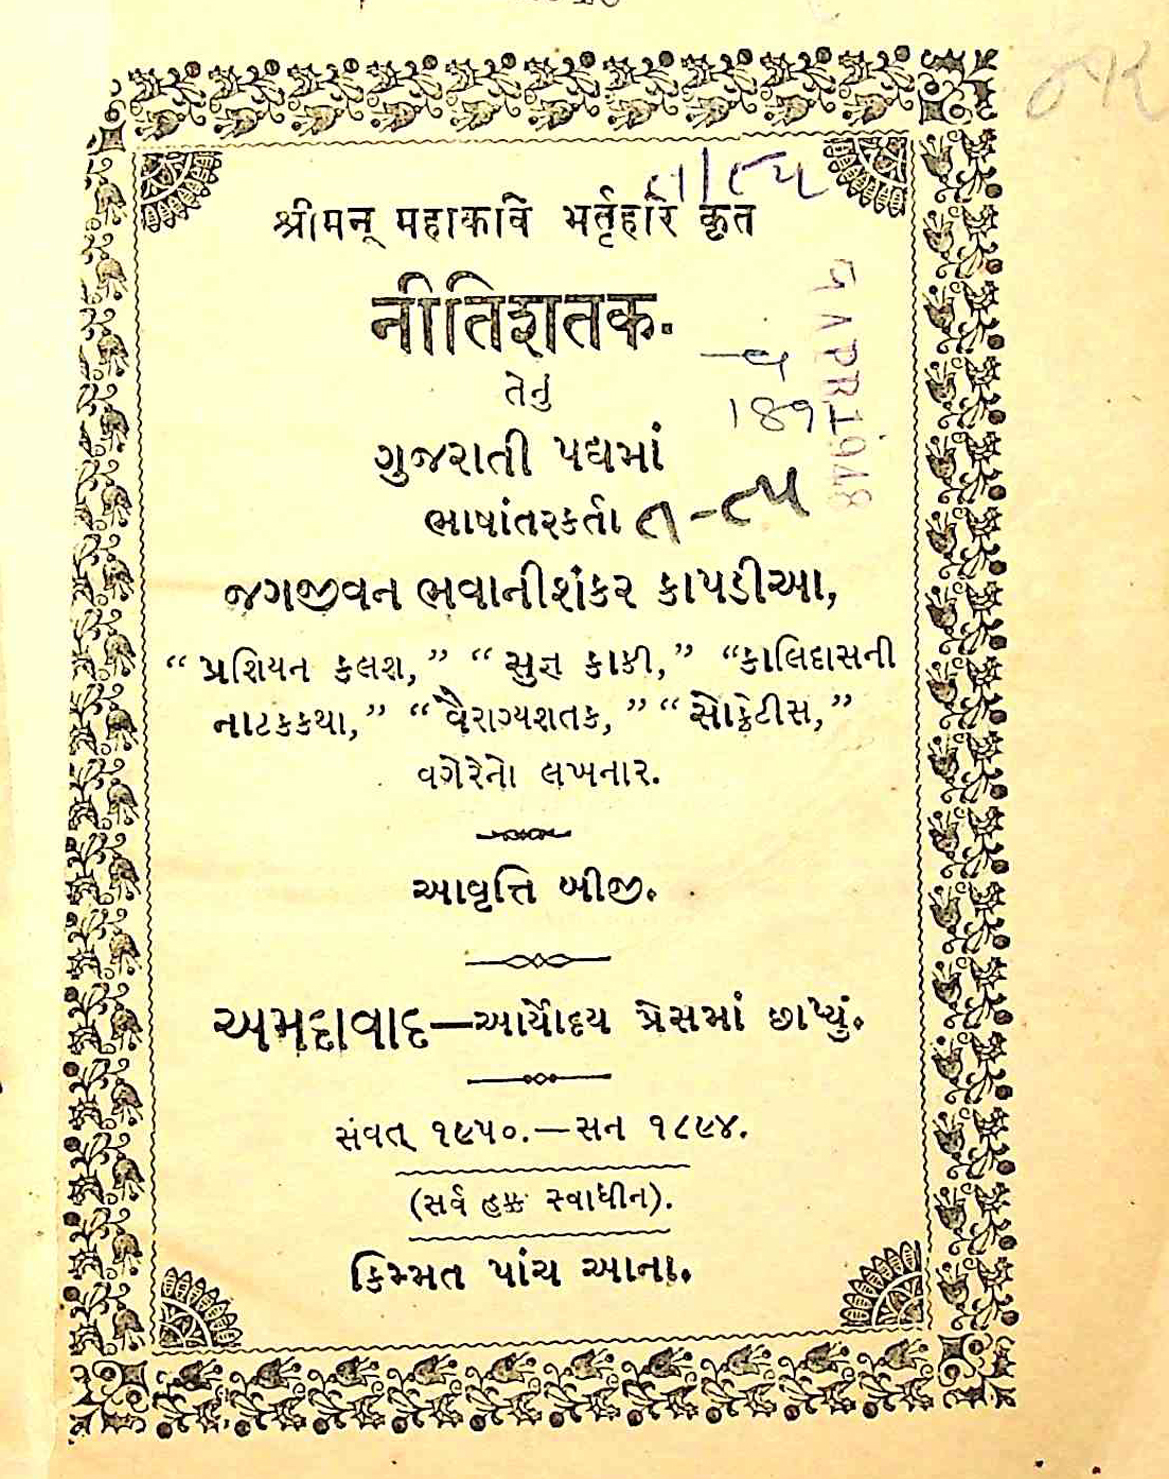 ત/૮૫
श्रीमन् महाकवि भर्तृहरि कृत
नीतिशतक.
તેનું
ગુજરાતી પદ્યમાં
ભાષાંતરકર્તા
ત-૮૫
જગજીવન ભવાનીશંકર કાપડીઆ,
“ પ્રશિયન કલશ,” “ સુજ્ઞ કાકી,” “કાલિદાસની
નાટકકથા,” “ વૈરાગ્યશતક, ” “ સોક્રેટીસ, ”
વગેરેનો લખનાર.
આવૃત્તિ બીજી.
અમદાવાદ—આર્યોદય પ્રેસમાં છાપ્યું.
સંવત્ ૧૯૫૦.—સન ૧૮૯૪.
(સર્વ હક્ક સ્વાધીન).
કિમ્મત પાંચ આના.
APR 1948